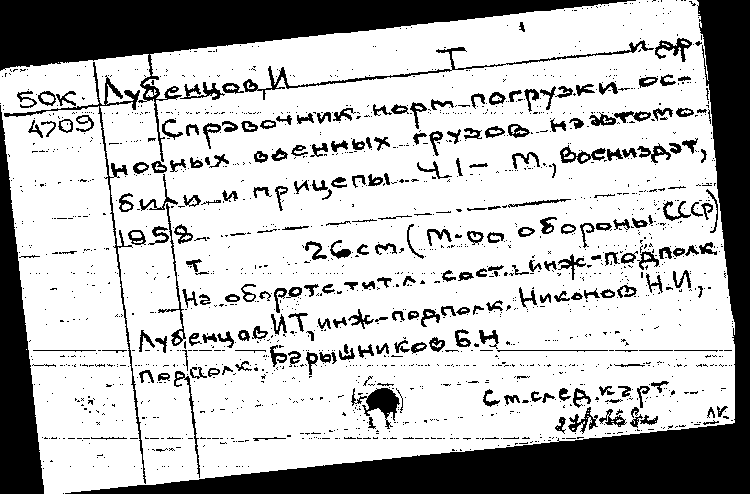 50к. Лубенцов, И Т и др.
4709 Справочник норм погрузки ос-
новных военных грузов на автомо-
били и прицепы Ч. I - М., Воениздат,
1958
т 26 см. (М-во обороны СССР)
На обороте тит. л. сост.: инж.-подполк.
Лубенцов И Т, инж.-подполк. Никонов Н.И,
подполк. Барышников Б.Н.
См. след. карт.
ЛК